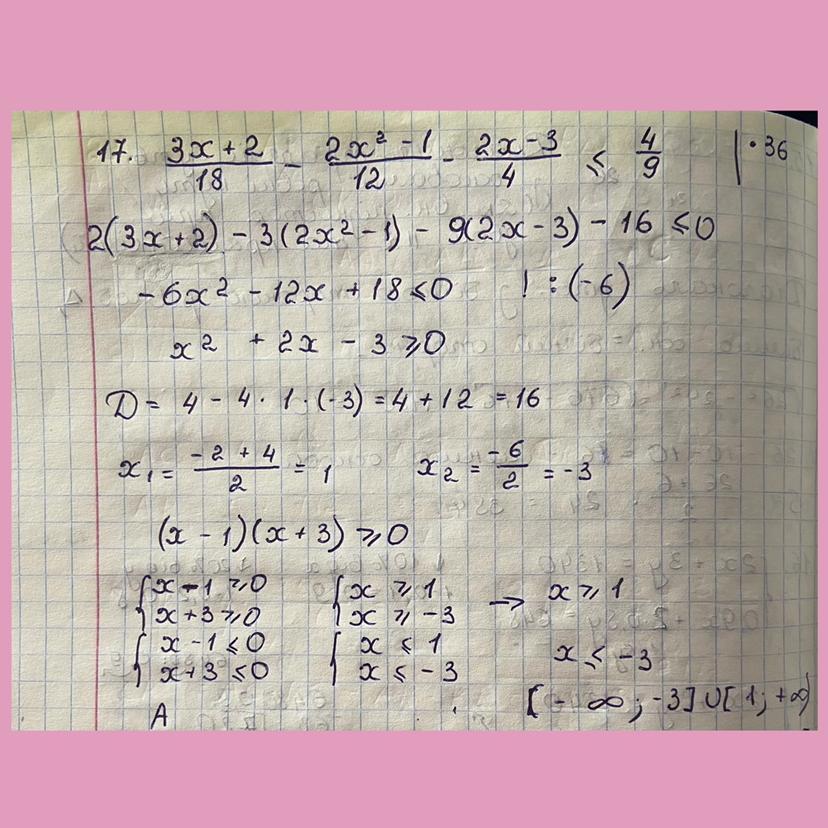 17. (3x+2)/18 - (2x² -1)/12 - (2x-3)/4 ≤ 4/9 | · 36
2(3x+2) - 3(2x²-1) - 9(2x-3) - 16 ≤ 0
-6x² - 12x + 18 ≤ 0 ! : (-6)
x² + 2x - 3 ⩾ 0
D = 4 - 4 · 1 · (-3) = 4 + 12 = 16
x₁ = (-2 + 4)/2 = 1 x₂ = -6/2 = -3
(x - 1)(x + 3) ⩾ 0
{ x - 1 ⩾ 0 { x ⩾ 1 → x ⩾ 1
x + 3 ⩾ 0 x ⩾ -3
{ x - 1 ≤ 0 { x ≤ 1 x ≤ -3
x + 3 ≤ 0 x ≤ -3
[- ∞ ; -3] ∪ [1 ; +∞)
A